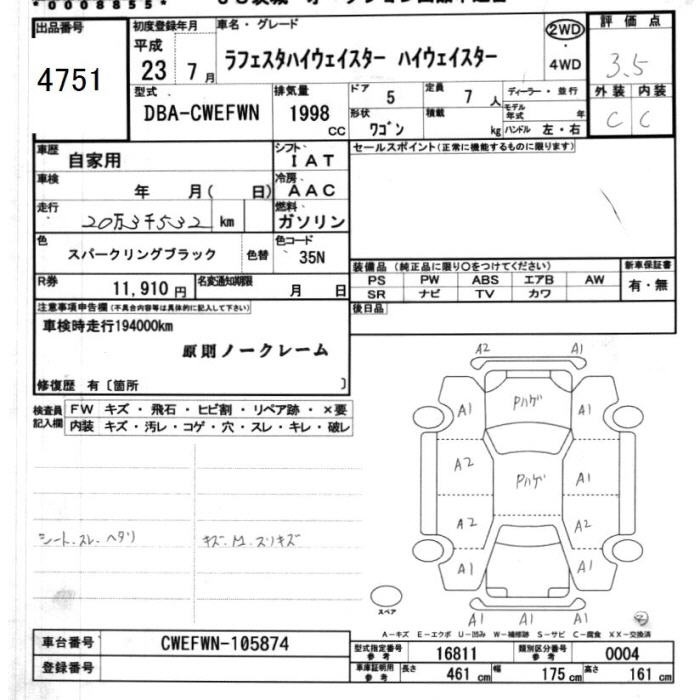 *0008855*
出品番号
4751
初度登録年月
平成
23 7月
車名・グレード
ラフェスタハイウェイスター ハイウェイスター
2WD
・
4WD
評価点
3.5
外装 内装
C C
型式
DBA-CWEFWN
排気量
1998
CC
ドア
5
定員
7 人
形状
ワゴン
積載
kg
ディーラー・並行
モデル年式 年
ハンドル 左・右
車歴
自家用
シフト
IAT
車検
年 月( 日)
冷房
AAC
走行
20万3千532 km
燃料
ガソリン
色
スパークリングブラック
色替
色コード
35N
R券
11,910円
名変通知期限
月 日
セールスポイント(正常に機能するものに限ります)
装備品(純正品に限り○をつけてください)
PS PW ABS エアB AW
SR ナビ TV カワ
新車保証書
有・無
後日品
注意事項申告欄(不具合内容等は具体的に記入して下さい)
車検時走行194000km
原則ノークレーム
修復歴 有〔箇所 〕
検査員
記入欄
FW キズ・飛石・ヒビ割・リペア跡・×要
内装 キズ・汚レ・コゲ・穴・スレ・キレ・破レ
シート.スレ.ヘタリ
キズ.M.スリキズ
A2 A1
A1 Pハゲ A1
A2 Pハゲ A1
A2 A2
A1 A1
A1 A1
スペア
A-キズ E-エクボ U-凹み W-補修跡 S-サビ C-腐食 XX-交換済
車台番号
CWEFWN-105874
登録番号
型式指定番号
参考
16811
類別区分番号
参考
0004
車庫証明用
参考
長さ 461 cm 幅 175 cm 高さ 161 cm